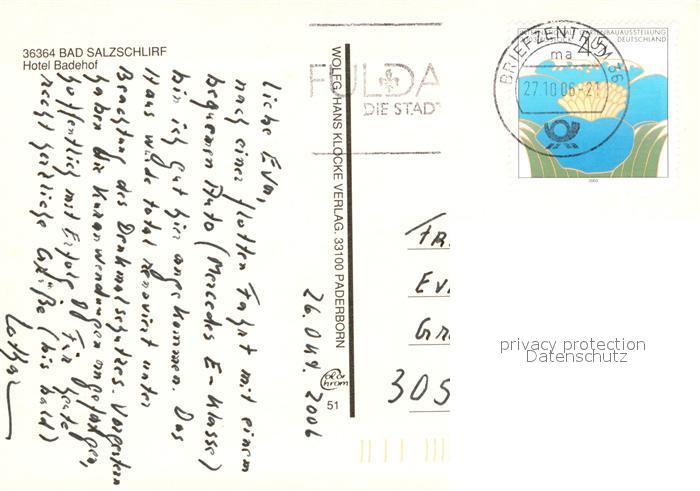 36364 BAD SALZSCHLIRF
Hotel Badehof
26. Okt. 2006
Liebe Eva,
nach einer flotten Fahrt mit einem
bequemen Auto (Mercedes E-Klasse)
bin ich gut hier angekommen. Das
Haus wurde total renoviert unter
Beachtung des Denkmalschutzes. Vorgestern
haben die Kuranwendungen angefangen,
hoffentlich mit Erfolg. Für heute
recht herzliche Grüße (bis bald)
Lothar
WOLFG. HANS KLOCKE VERLAG. 33100 PADERBORN
Color
Chrom
51
FULDA
DIE STADT
BRIEFZENTRUM 36
ma
27.10.06-21
GARTENBAUAUSSTELLUNG
DEUTSCHLAND
45
2003
Fr.
Ev
Gr
305
privacy protection
Datenschutz